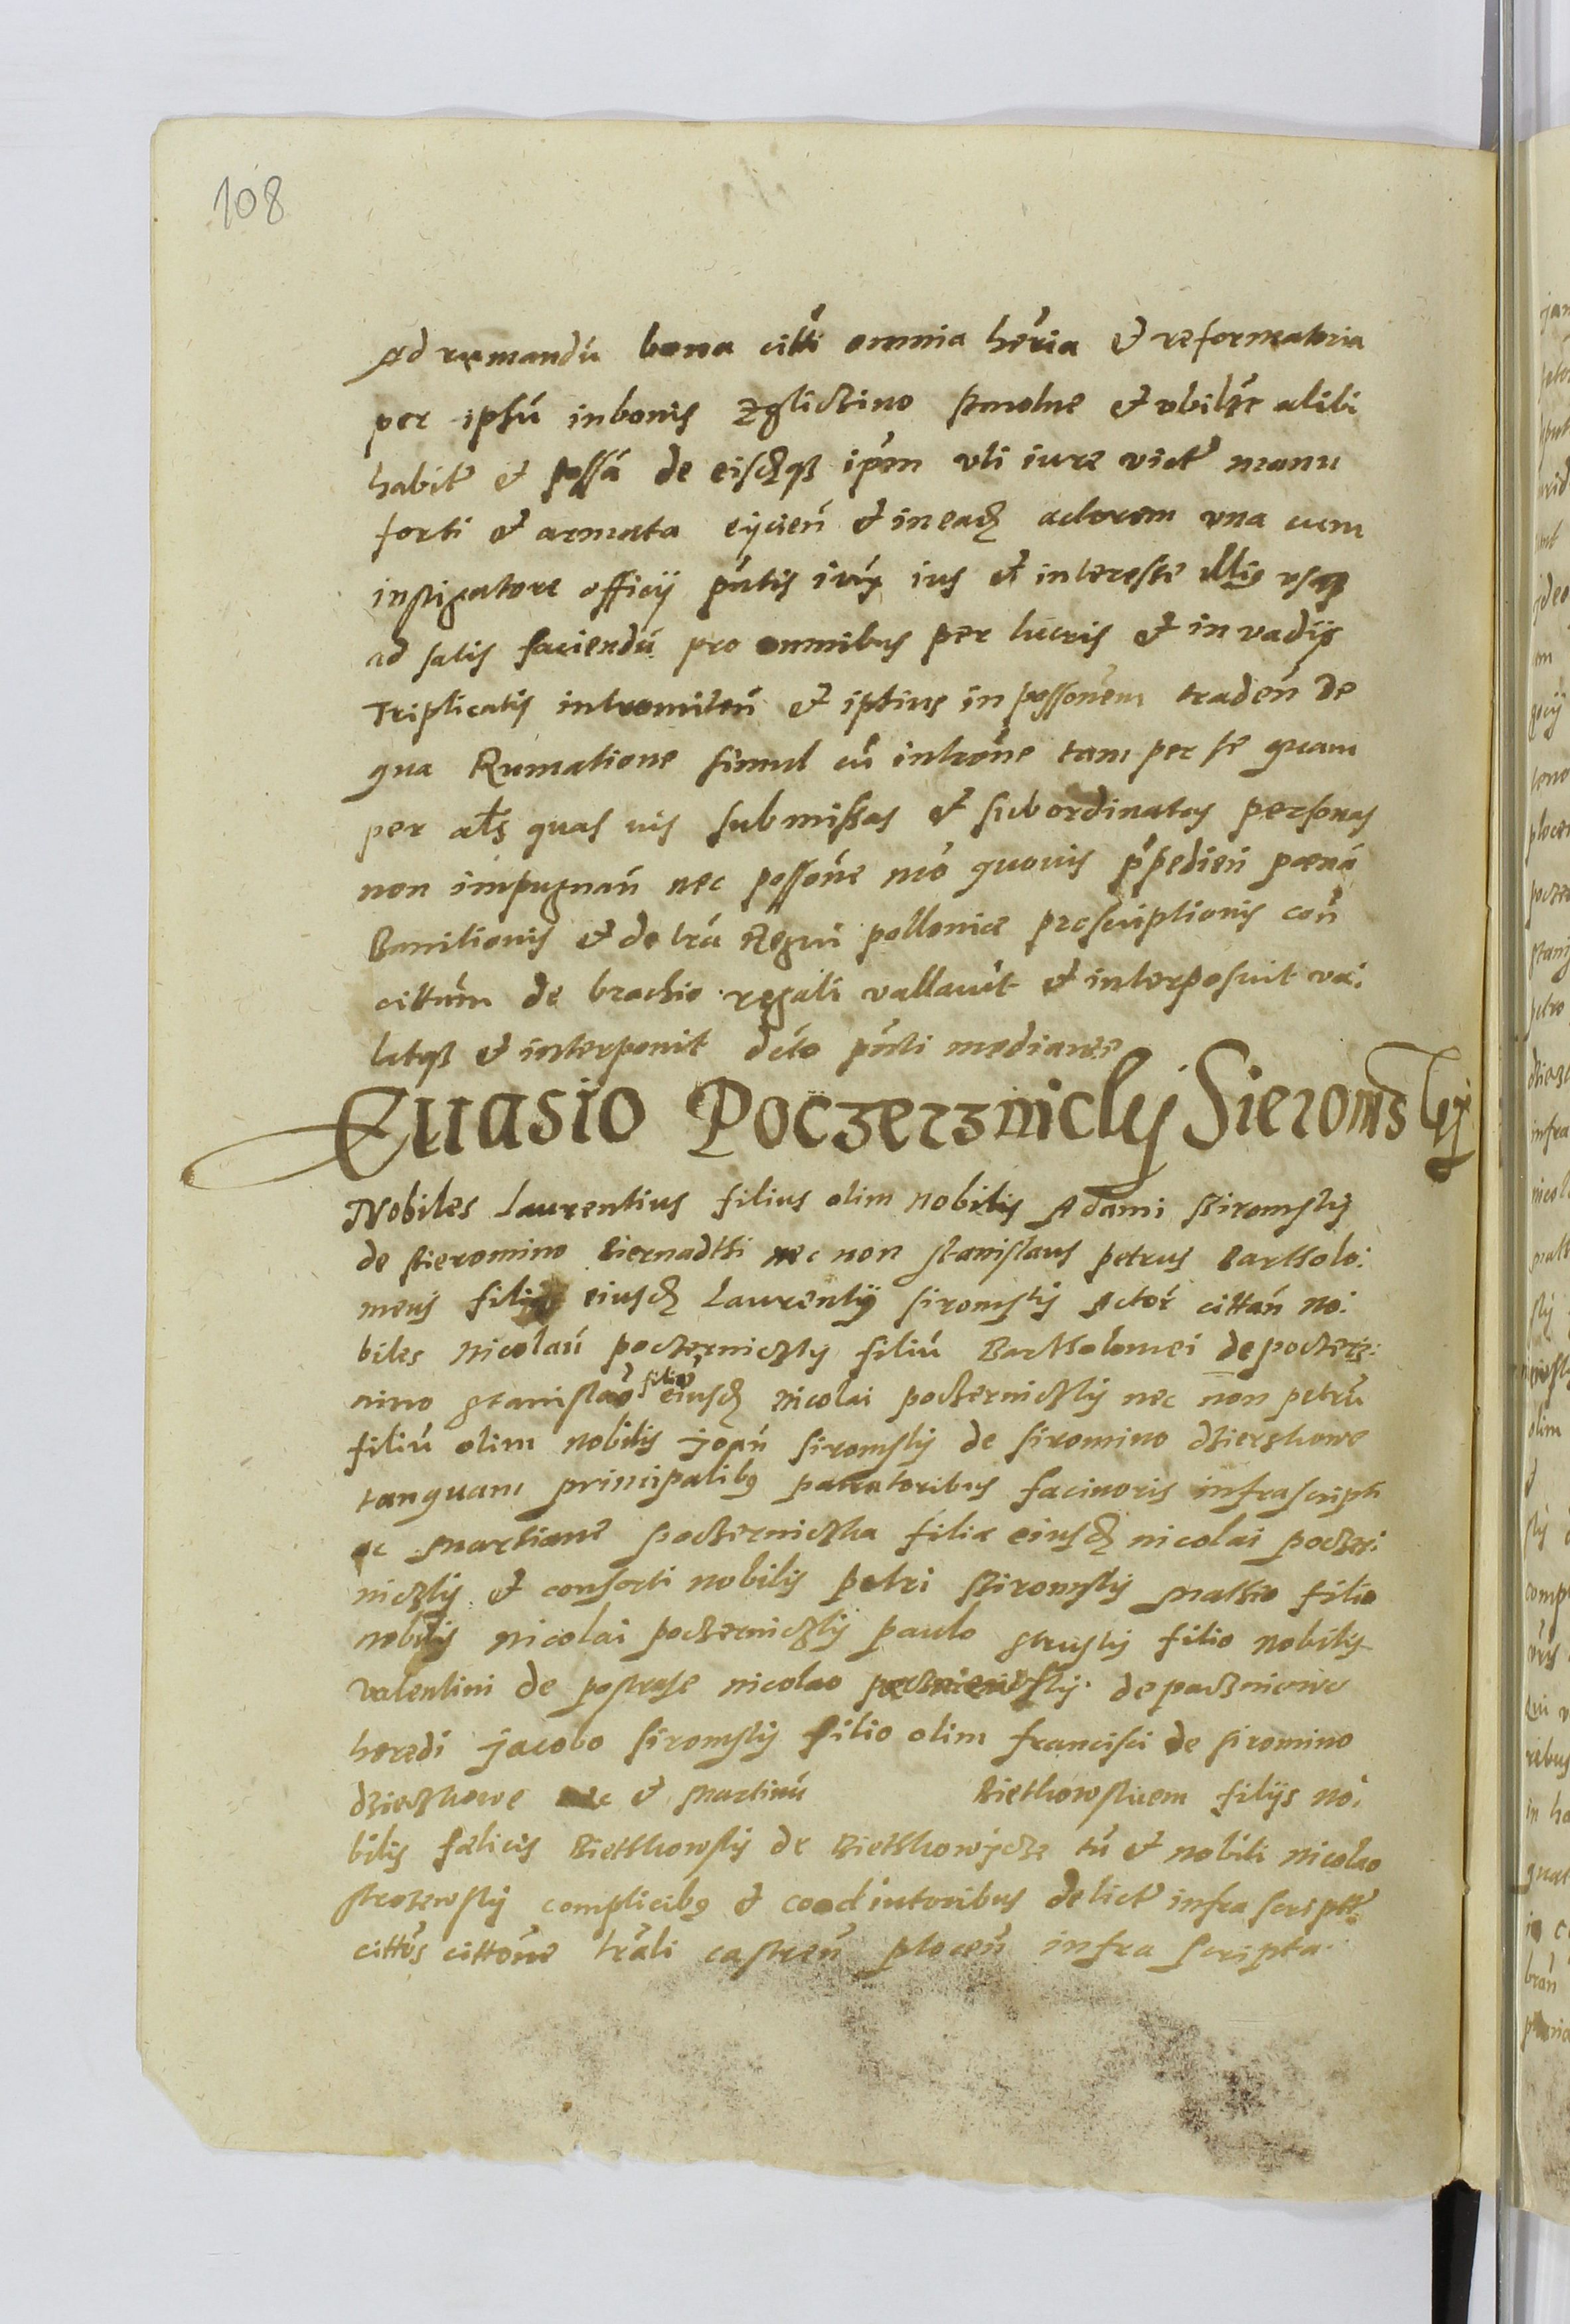 108
Ad rumandu bona citti omnia heria et reformatoria
per ipsu in bonis Zglicżino smolne et ubilzr alibi
habit et possa de eisdqz ipm uti iure vict manu
forti et armata eijcien et in eadz actorem una cum
instigatore officij pntis iux ius et interesse illis usqz
ad satis faciendu pro omnibus per lucris et in vadijs
Triplicatis intromiten et ipsius in possonem traden de
qua Rumatione simul cu introne tam per se quam
per als quas vis submissas et subordinatas personas
non impugnan nec possone mo quovis ppedien pena
Banitionis et de tra Regni pollonie proscriptionis con
cittum de brachio regali vallavit et interposuit val
latqz et interponit dcto pnti mediante
Evasio Poczerznicky Sieromsky
Nobiles Laurentius filius olim nobilis Adami Siromsky
de Sieromino Biernadthi nec non stanislaus petrus Bartholo:
meus filij eiusdz Laurentij siromsky Actor cittan no:
biles nicolau poczerniczky filiu Bartholomei de poczerz:
nino stanislao filio eiusdz nicolai poczerniczky nec non petru
filiu olim nobilis joan siromsky de siromino dzierzkowe
tanquam principalibq patratoribus facinoris infrascripti
ac Martiane poczerniczka filia eiusdz nicolai poczer:
niczky et consorti nobilis petri Siromsky Mattheo filio
nobilis nicolai poczerniczky paulo gruski filio nobilis
valentini de postruse nicolao de paczniowo
heredi jacobo siromsky filio olim francisci de siromino
dzierzkowe nec et Martinu Bietkowskiem filijs no:
bilis felicis Bietkkowsky de Bietkkowycze tu et nobili nicolao
strozewsky complicibq et coadiutoribus delict infra script
cittos cittone trali castren plocen infra scripta